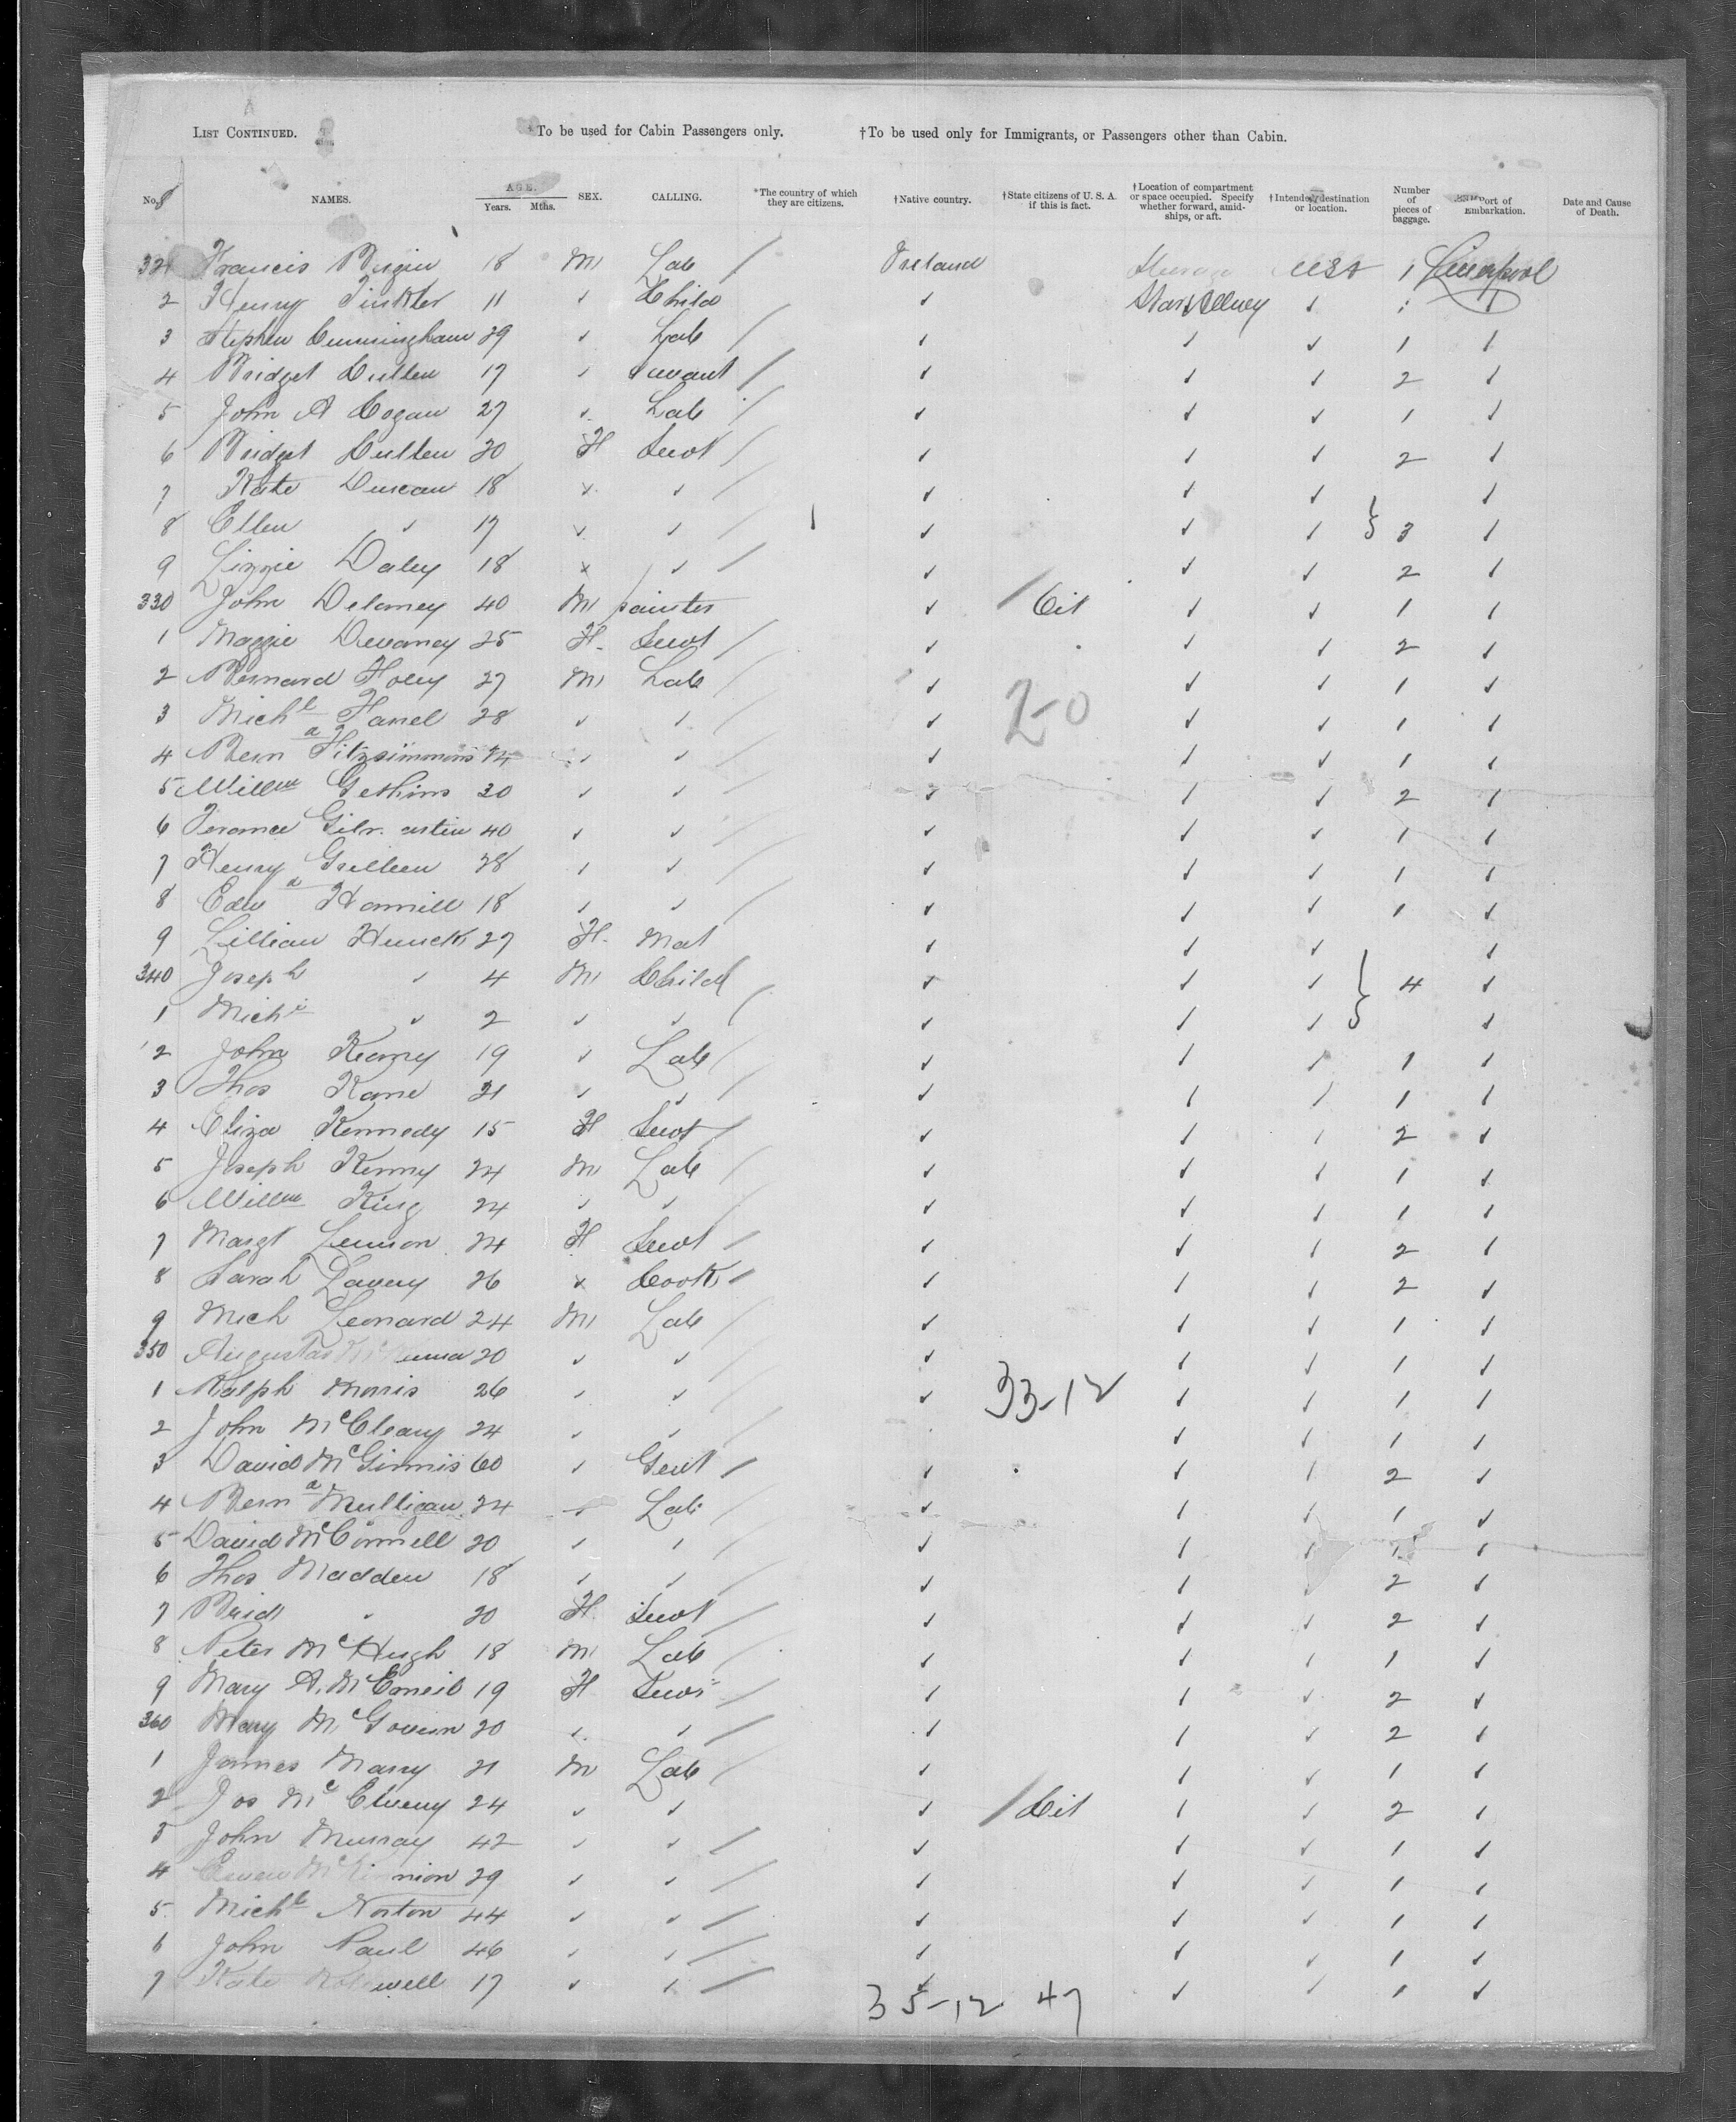 LIST CONTINUED. *To be used for Cabin Passengers only. †To be used only for Immigrants, or Passengers other than Cabin.
No. NAMES. AGE. Years. Mths. SEX. CALLING. *The country of which they are citizens. †Native country. †State citizens of U. S. A. if this is fact. †Location of compartment or space occupied. Specify whether forward, amidships, or aft. †Intended destination or location. Number of pieces of baggage. Port of Embarkation. Date and Cause of Death.
321 Francis 18 M Lab / Ireland USA 1 Liverpool
2 Henry Tinkler 11 ✓ Child ✓ ✓ 1
3 Stephen Cunningham 29 ✓ Lab / ✓ ✓ ✓ 1 ✓
4 Bridget Cullen 17 ✓ Servant / ✓ ✓ ✓ 2 ✓
5 John A Cogan 27 ✓ Lab / ✓ ✓ ✓ 1 ✓
6 Bridget Cullen 20 F Servt / ✓ ✓ ✓ 2 ✓
7 Kate Duncan 18 ✓ ✓ / ✓ ✓ ✓ ✓
8 Ellen ✓ 17 ✓ ✓ / ✓ ✓ ✓ } 3 ✓
9 Lizzie Daley 18 ✓ ✓ / ✓ ✓ ✓ 2 ✓
330 John Delaney 40 M painter ✓ / Cit ✓ ✓ 1 ✓
1 Maggie Devaney 25 F Servt / ✓ ✓ ✓ 2 ✓
2 Bernard Foley 27 M Lab / ✓ ✓ ✓ 1 ✓
3 Michl 28 ✓ ✓ / ✓ 2-0 ✓ ✓ 1 ✓
4 Bernd Fitzsimmons 24 ✓ ✓ / ✓ ✓ ✓ 1 ✓
5 Willm Gethins 30 ✓ ✓ / ✓ ✓ ✓ 2 ✓
6 40 ✓ ✓ / ✓ ✓ ✓ 1 ✓
7 Henry 28 ✓ ✓ / ✓ ✓ ✓ 1 ✓
8 Edwd Hammill 18 ✓ ✓ / ✓ ✓ ✓ 1 ✓
9 Lillian 27 F Mat ✓ ✓ ✓ ✓
340 Joseph ✓ 4 M Child ✓ ✓ ✓ } 4 ✓
1 Michl ✓ 2 ✓ ✓ / ✓ ✓ ✓ ✓
2 John Kearny 19 ✓ Lab / ✓ ✓ ✓ 1 ✓
3 Thos Kane 21 ✓ ✓ / ✓ ✓ ✓ 1 ✓
4 Eliza Kennedy 15 F Servt / ✓ ✓ ✓ 2 ✓
5 Joseph Kenny 24 M Lab / ✓ ✓ ✓ 1 ✓
6 Willm King 24 ✓ ✓ / ✓ ✓ ✓ 1 ✓
7 Margt Lennon 24 F Servt / ✓ ✓ ✓ 2 ✓
8 Sarah Lavery 26 ✓ Cook / ✓ ✓ ✓ 2 ✓
9 Mich Leonard 24 M Lab / ✓ ✓ ✓ 1 ✓
350 20 ✓ ✓ / ✓ ✓ ✓ 1 ✓
1 Ralph Morris 26 ✓ ✓ / ✓ 33-12 ✓ ✓ 1 ✓
2 John McCleary 24 ✓ ✓ / ✓ ✓ 1 ✓
3 David McGinnis 60 ✓ Gent / ✓ ✓ ✓ 2 ✓
4 Bernd Mulligan 24 ✓ Lab / ✓ ✓ ✓ 1 ✓
5 David McConnell 20 ✓ ✓ / ✓ ✓ ✓ 1 ✓
6 Thos Madden 18 ✓ ✓ / ✓ ✓ ✓ 2 ✓
7 Brid ✓ 20 F Servt / ✓ ✓ ✓ 2 ✓
8 Peter McHugh 18 M Lab / ✓ ✓ ✓ 1 ✓
9 Mary A. 19 F Servt / ✓ ✓ ✓ 2 ✓
360 Mary McGovern 20 ✓ ✓ / ✓ ✓ ✓ 2 ✓
1 James Marry 21 M Lab / ✓ ✓ ✓ 1 ✓
2 Jos 24 ✓ ✓ ✓ / Cit ✓ ✓ 2 ✓
3 John Murray 42 ✓ ✓ / ✓ ✓ ✓ 1 ✓
4 29 ✓ ✓ / ✓ ✓ ✓ 1 ✓
5 Michl Norton 44 ✓ ✓ / ✓ ✓ ✓ 1 ✓
6 John Paul 46 ✓ ✓ / ✓ ✓ ✓ 1 ✓
7 Kate 17 ✓ ✓ / ✓ ✓ ✓ 1 ✓
35-12 47